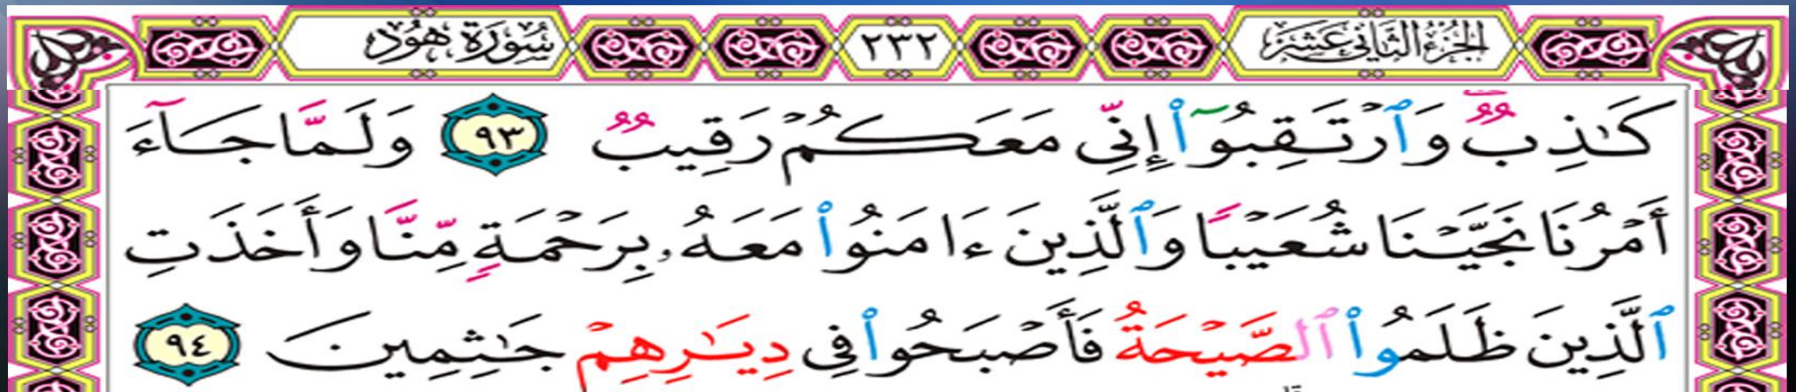 الجزء الثاني عشر ٢٣٢ سورة هود
كَـٰذِبٌۭ ۖ وَٱرْتَقِبُوٓا۟ إِنِّى مَعَكُمْ رَقِيبٌۭ ٩٣ وَلَمَّا جَآءَ
أَمْرُنَا نَجَّيْنَا شُعَيْبًۭا وَٱلَّذِينَ ءَامَنُوا۟ مَعَهُۥ بِرَحْمَةٍۢ مِّنَّا وَأَخَذَتِ
ٱلَّذِينَ ظَلَمُوا۟ ٱلصَّيْحَةُ فَأَصْبَحُوا۟ فِى دِيَـٰرِهِمْ جَـٰثِمِينَ ٩٤